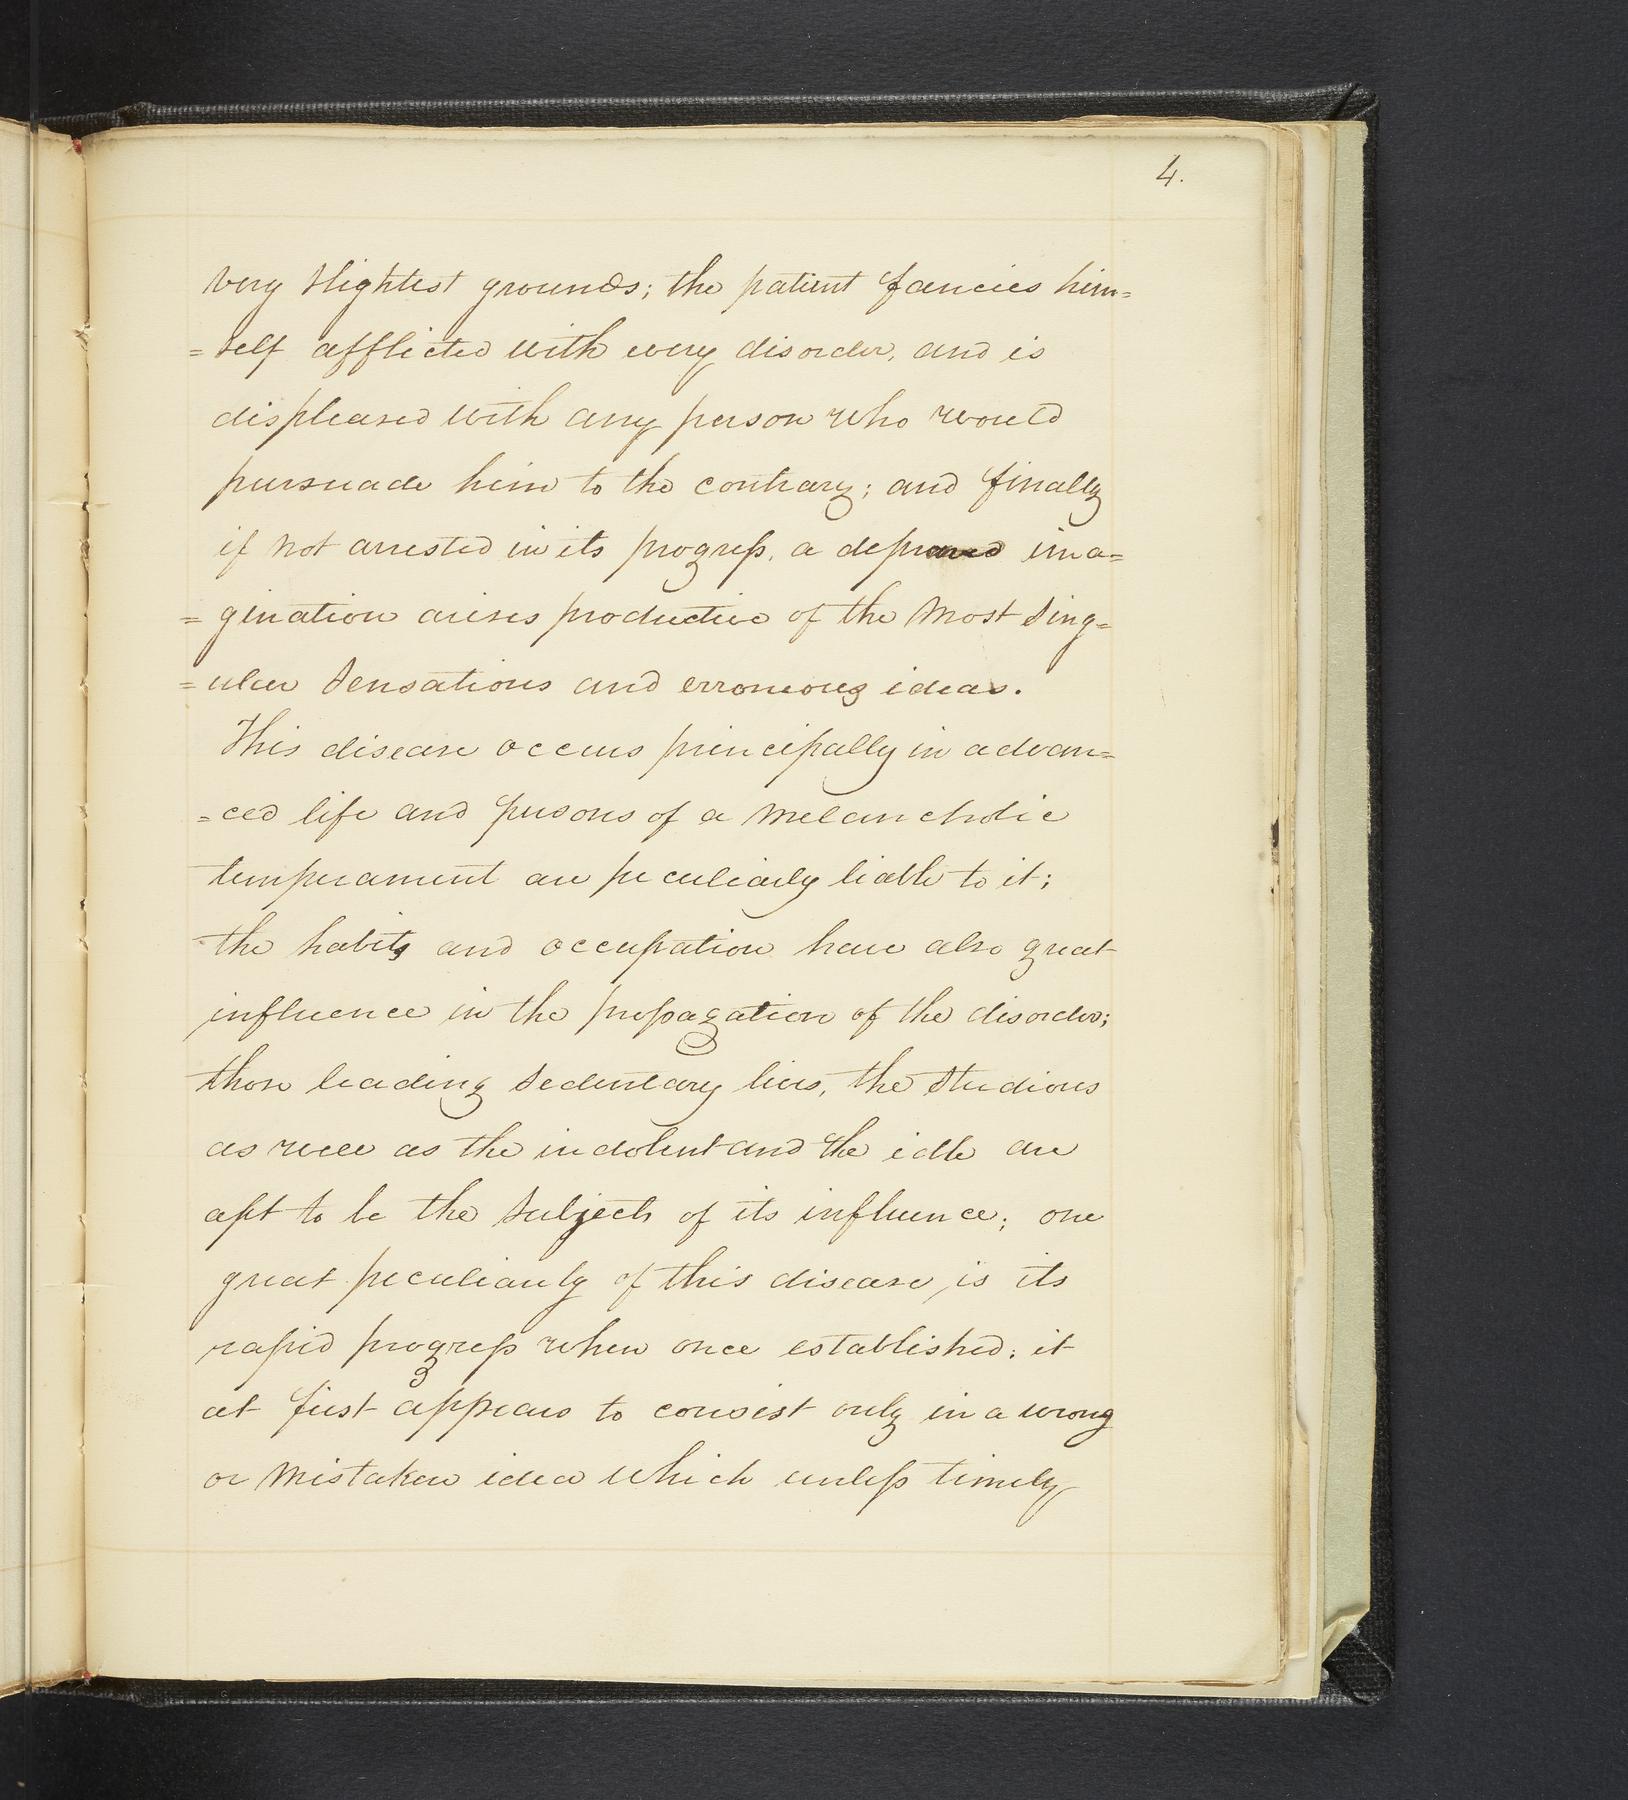 4.
very slightest grounds; the patient fancies him=
=self afflicted with every disorder, and is
displeased with any person who would
pursuade him to the contrary; and finally
if not arrested in its progress, a depraved ima=
=gination arises productive of the most sing=
=ular sensations and erroneous ideas.
This disease occurs principally in advan=
=ced life and persons of a melancholic
temperament are peculiarly liable to it;
the habits and occupation have also great
influence in the propagation of the disorder;
those leading sedentary lives, the studious
as well as the indolent and the idle are
apt to be the subjects of its influence; one
great peculiarity of this disease, is its
rapid progress when once established; it
at first appears to consist only in a wrong
or mistaken idea which unless timely